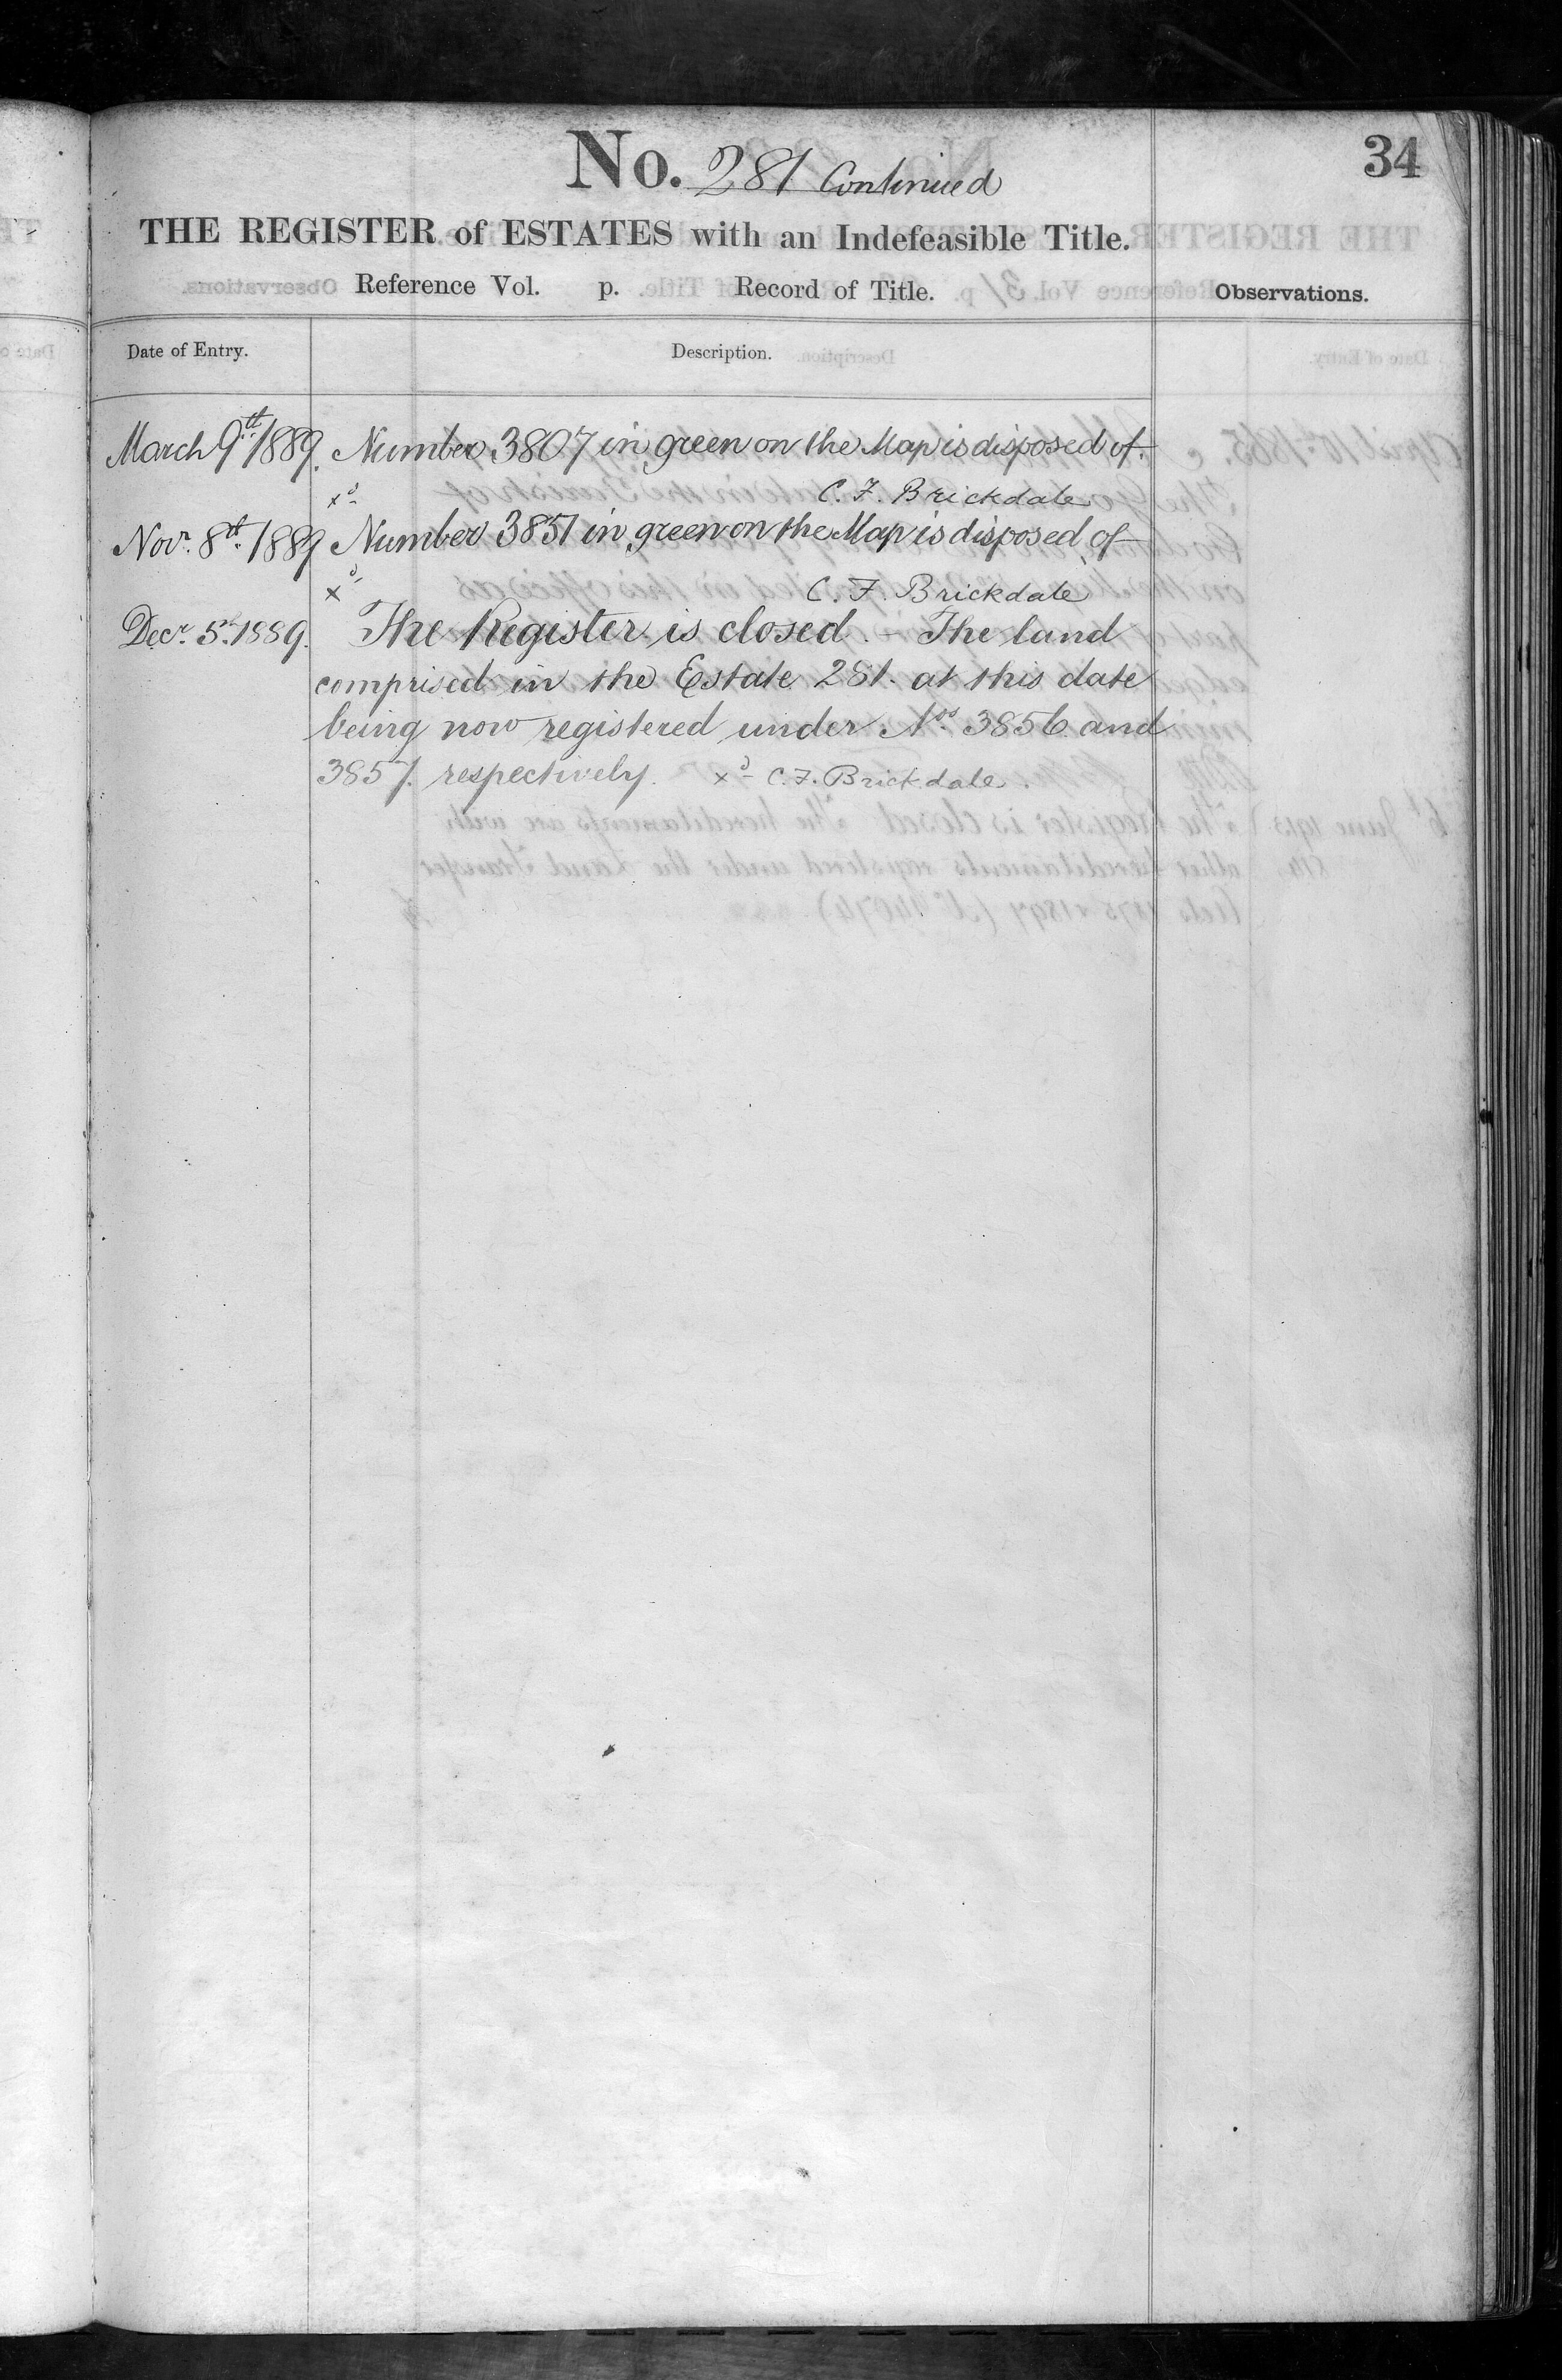 34
No. 281 Continued
THE REGISTER of ESTATES with an Indefeasible Title.
Reference Vol. p. Record of Title. Observations.
Date of Entry. Description.
March 9th 1889. Number 3807 in green on the Map is disposed of.
xd C. F. Brickdale
Novr. 8th. 1889 Number 3851 in green on the Map is disposed of
xd C. F. Brickdale
Decr. 5th 1889. The Register is closed. – The land
comprised in the Estate 281. at this date
being now registered under Nos. 3856 and
3857. respectively. xd C. F. Brickdale.